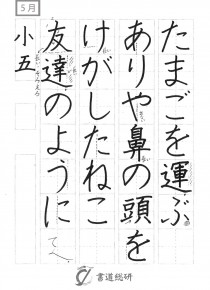 5月
たまごを運ぶ
ありや鼻の頭を
けがしたねこ
友達のように
小五
書道総研